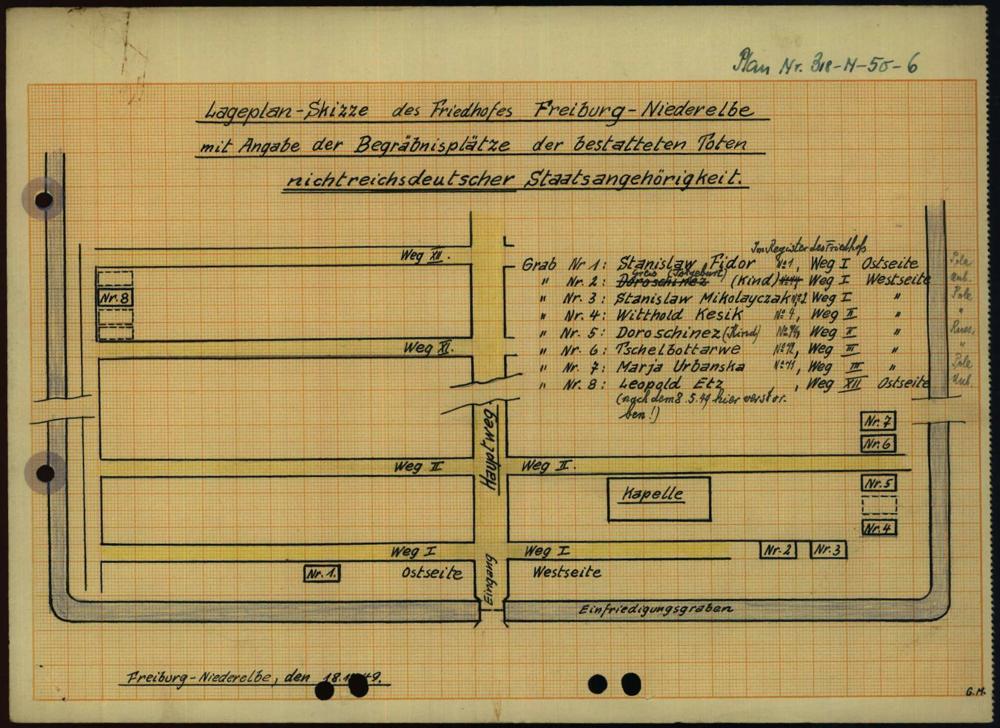 Plan Nr. 318-N-50-6
Lageplan-Skizze des Friedhofes Freiburg-Niederelbe
mit Angabe der Begräbnisplätze der bestatteten Toten
nichtreichsdeutscher Staatsangehörigkeit.
Im Register des Friedhofs
Grab Nr 1: Stanislaw Fidor No 1, Weg I Ostseite Pole
" Nr. 2: Doroschinez (Kind) Weg I Westseite Unb.
" Nr. 3: Stanislaw Mikolayczak No 2 Weg I " Pole
" Nr. 4: Witthold Kesik No 9, Weg II " "
" Nr. 5: Doroschinez (Kind) Weg II " Russ.
" Nr. 6: Tschelbottarwe Weg III " "
" Nr. 7: Marja Urbanska No 11, Weg III " Pole
" Nr. 8: Leopold Etz, Weg XII Ostseite Unb.
(nach dem 8.5.49 hier verstor.
ben!)
Weg XII.
Nr. 8
Weg XI.
Hauptweg
Nr. 7
Nr. 6
Weg II
Weg II.
Nr. 5
Kapelle
Nr. 4
Weg I
Weg I
Nr. 2
Nr. 3
Nr. 1.
Ostseite
Eingang
Westseite
Einfriedigungsgraben
Freiburg-Niederelbe, den 18.
G.M.